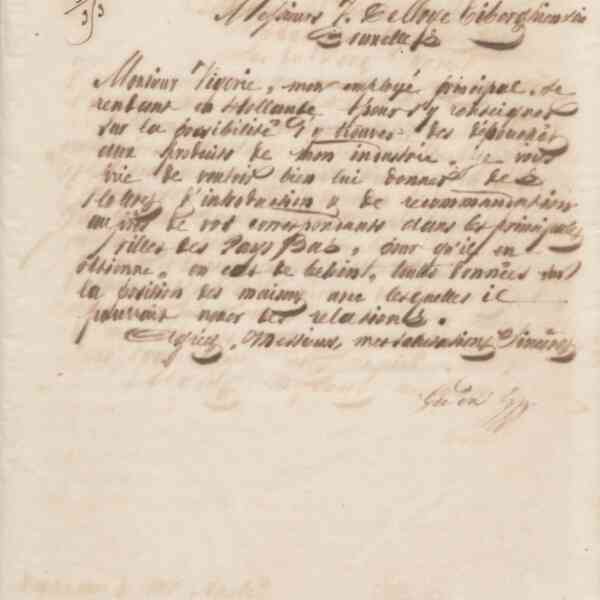 3/3
Messieurs J. De Moye Tiberghien
Bruxelles
Monsieur Tisserie, mon employé principal, se
rendant en Hollande pour s'y renseigner
sur la possibilité d'y trouver des débouchés
aux produits de mon industrie, je vous
prie de vouloir bien lui donner des
lettres d'introduction & de recommandation
auprès de vos correspondants dans les principales
villes des Pays Bas, pour qu'il en
obtienne, en cas de besoin, toutes données sur
la position des maisons avec lesquelles il
pourrait nouer des relations.
Agréez, Messieurs, mes salutations sincères